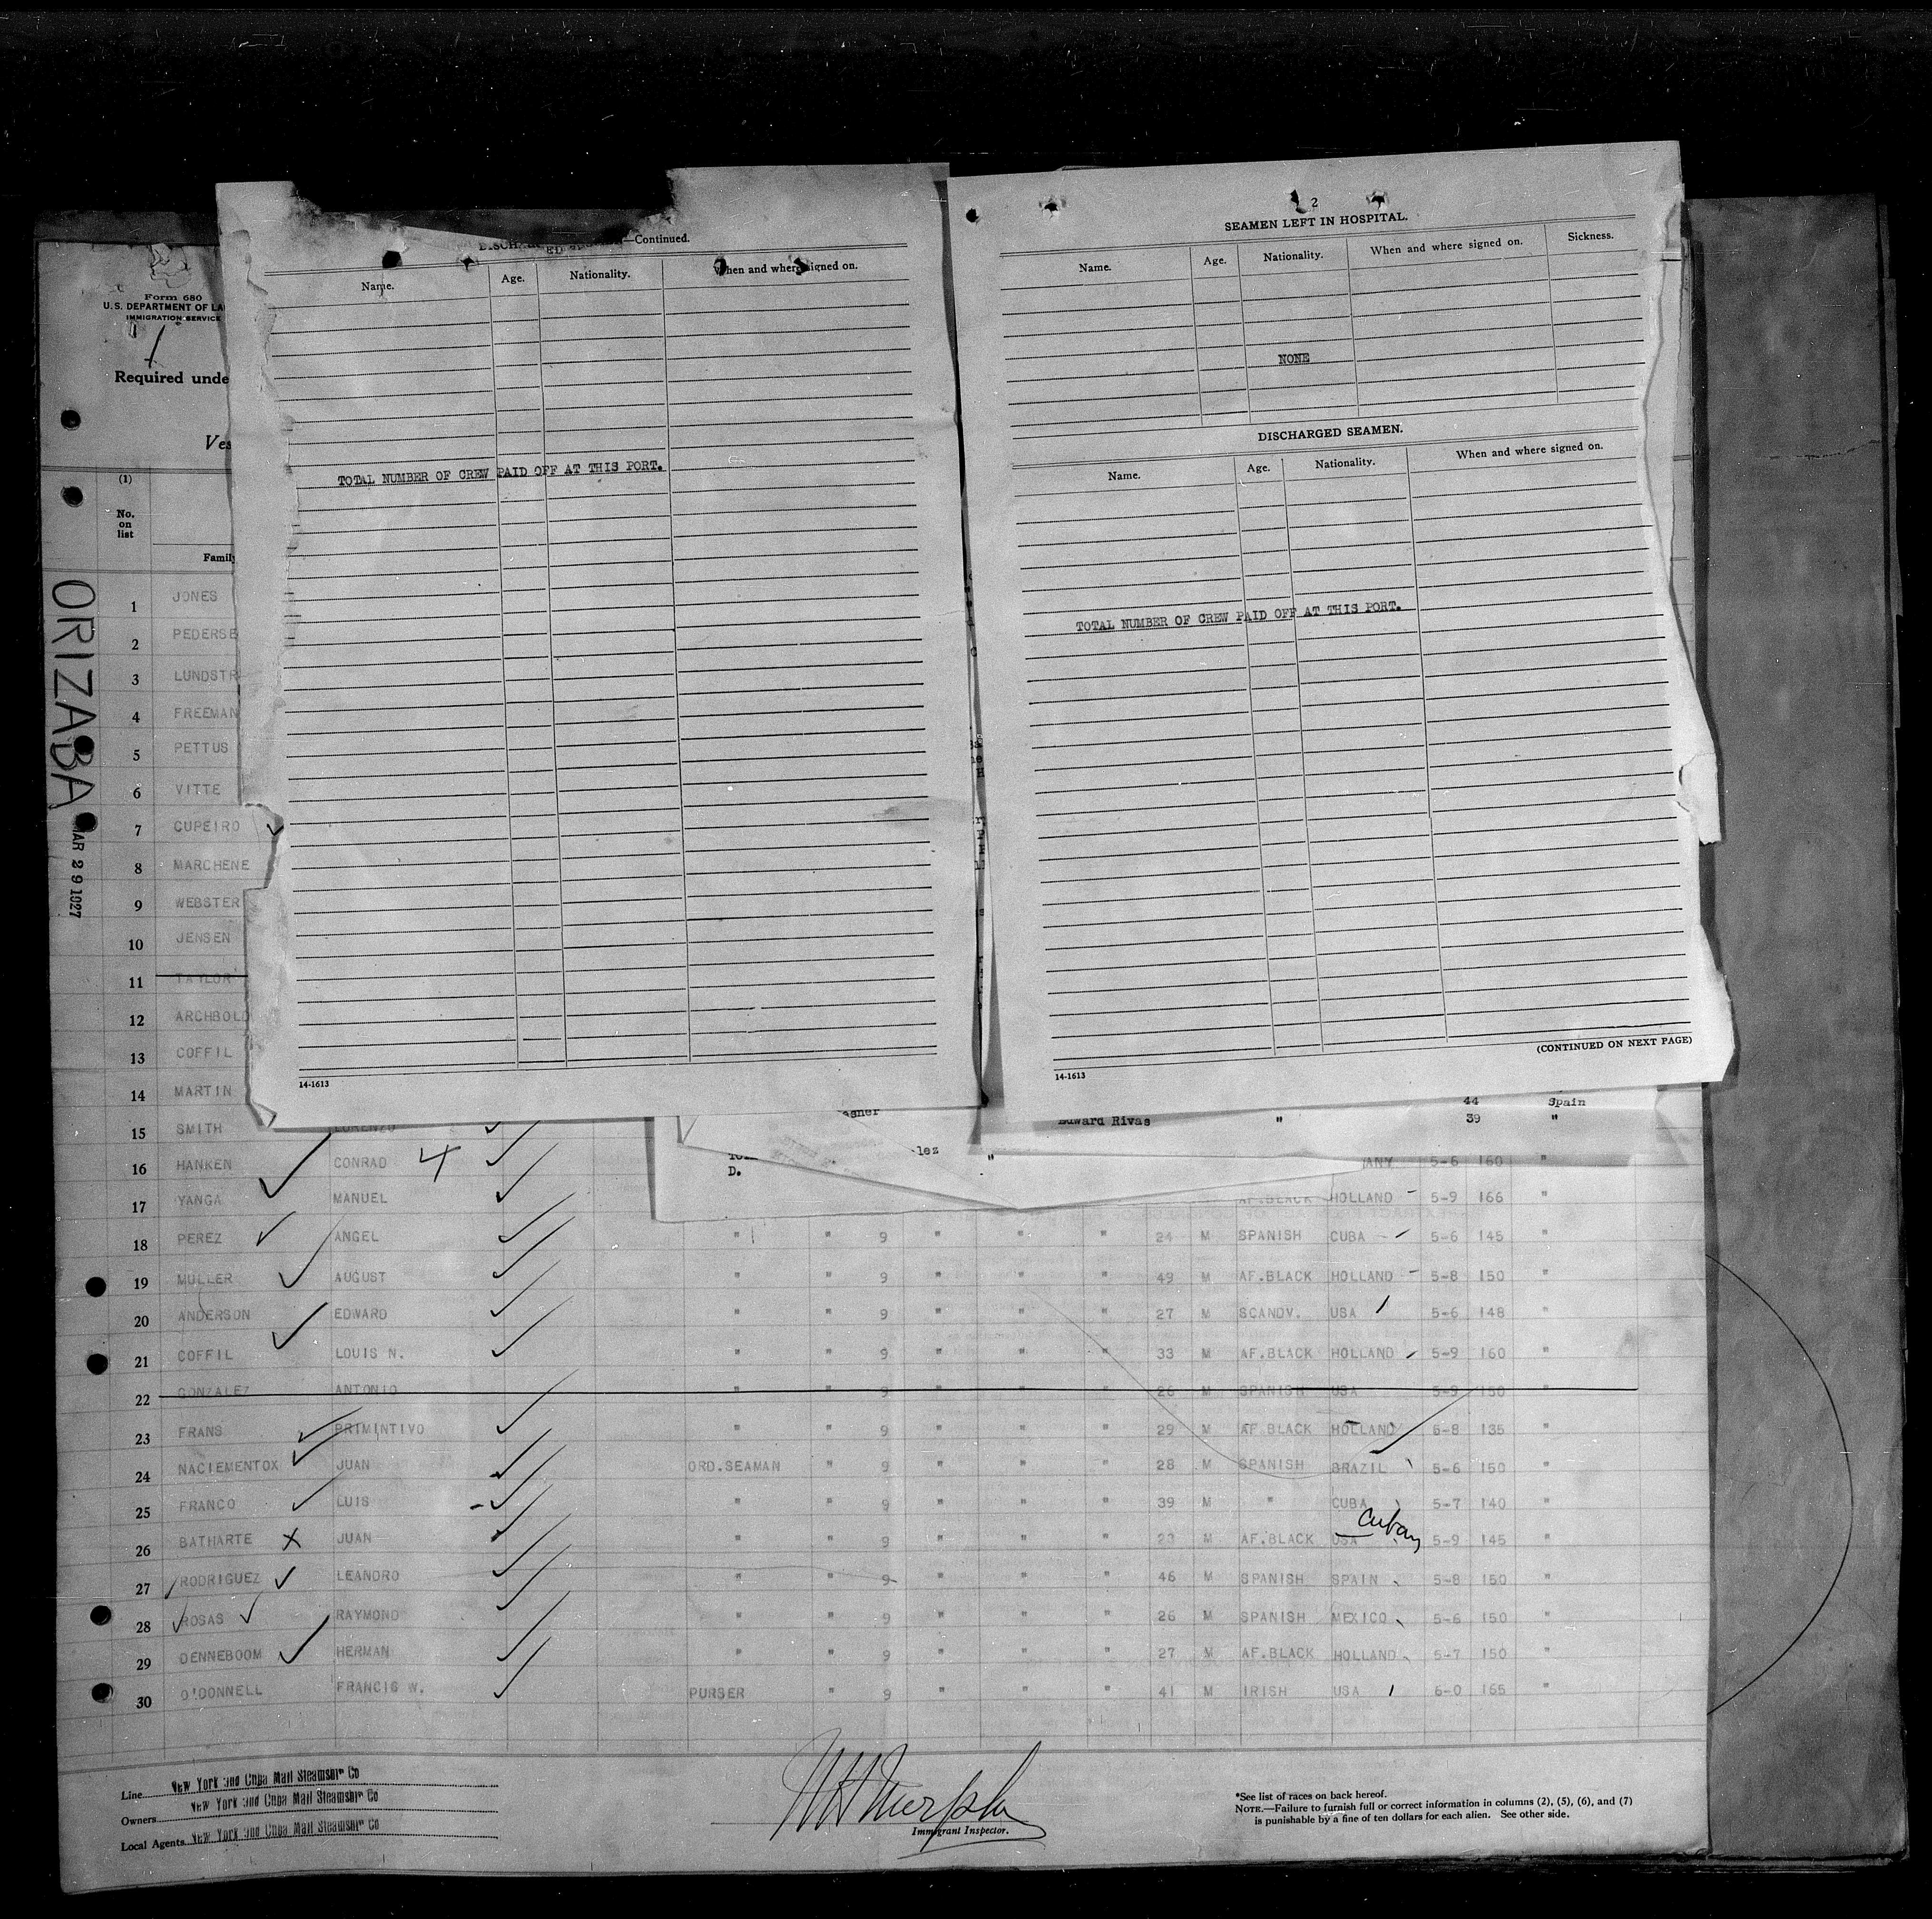 Form 680
U.S. DEPARTMENT OF LA
IMMIGRATION SERVICE
1
Required unde
Ves
(1)
No.
on
list
Famil
ORIZABA
MAR 29 1927
1 JONES
2 PEDERSE
3 LUNDSTR
4 FREEMAN
5 PETTUS
6 VITTE
7 CUPEIRO
8 MARCHENE
9 WEBSTER
10 JENSEN
11 TAYLOR
12 ARCHBOLD
13 COFFIL
14 MARTIN
—Continued.
Name. Age. Nationality. When and where signed on.
TOTAL NUMBER OF CREW PAID OFF AT THIS PORT.
14-1613
2
SEAMEN LEFT IN HOSPITAL.
Name. Age. Nationality. When and where signed on. Sickness.
NONE
DISCHARGED SEAMEN.
Name. Age. Nationality. When and where signed on.
TOTAL NUMBER OF CREW PAID OFF AT THIS PORT.
(CONTINUED ON NEXT PAGE)
14-1613
44 Spain
Edward Rivas " 39 "
lez "
D.
15 SMITH LORENZO
16 HANKEN CONRAD 4 ANY 5-6 160 "
17 YANGA MANUEL AF.BLACK HOLLAND 5-9 166 "
18 PEREZ ANGEL " " 9 " " " 24 M SPANISH CUBA 5-6 145 "
19 MULLER AUGUST " " 9 " " " 49 M AF.BLACK HOLLAND 5-8 150 "
20 ANDERSON EDWARD " " 9 " " " 27 M SCANDV. USA 5-6 148 "
21 COFFIL LOUIS N. " " 9 " " " 33 M AF.BLACK HOLLAND 5-9 160 "
22 GONZALEZ ANTONIO " " 9 " " " 26 M SPANISH USA 5-9 150 "
23 FRANS PRIMINTIVO " " 9 " " " 29 M AF.BLACK HOLLAND 5-8 135 "
24 NACIEMENTOX JUAN ORD.SEAMAN " 9 " " " 28 M SPANISH BRAZIL 5-6 150 "
25 FRANCO LUIS " " 9 " " " 39 M " CUBA 5-7 140 "
Cuban
26 BATHARTE X JUAN " " 9 " " " 23 M AF.BLACK USA 5-9 145 "
27 RODRIGUEZ LEANDRO " " 9 " " " 46 M SPANISH SPAIN 5-8 150 "
28 ROSAS RAYMOND " " 9 " " " 26 M SPANISH MEXICO 5-6 150 "
29 DENNEBOOM HERMAN " " 9 " " " 27 M AF.BLACK HOLLAND 5-7 150 "
30 O'DONNELL FRANCIS W. PURSER " 9 " " " 41 M IRISH USA 6-0 165 "
Line New York and Cuba Mail Steamship Co
Owners New York and Cuba Mail Steamship Co
Local Agents New York and Cuba Mail Steamship Co
W H Murphy
Immigrant Inspector.
*See list of races on back hereof.
NOTE.—Failure to furnish full or correct information in columns (2), (5), (6), and (7)
is punishable by a fine of ten dollars for each alien. See other side.